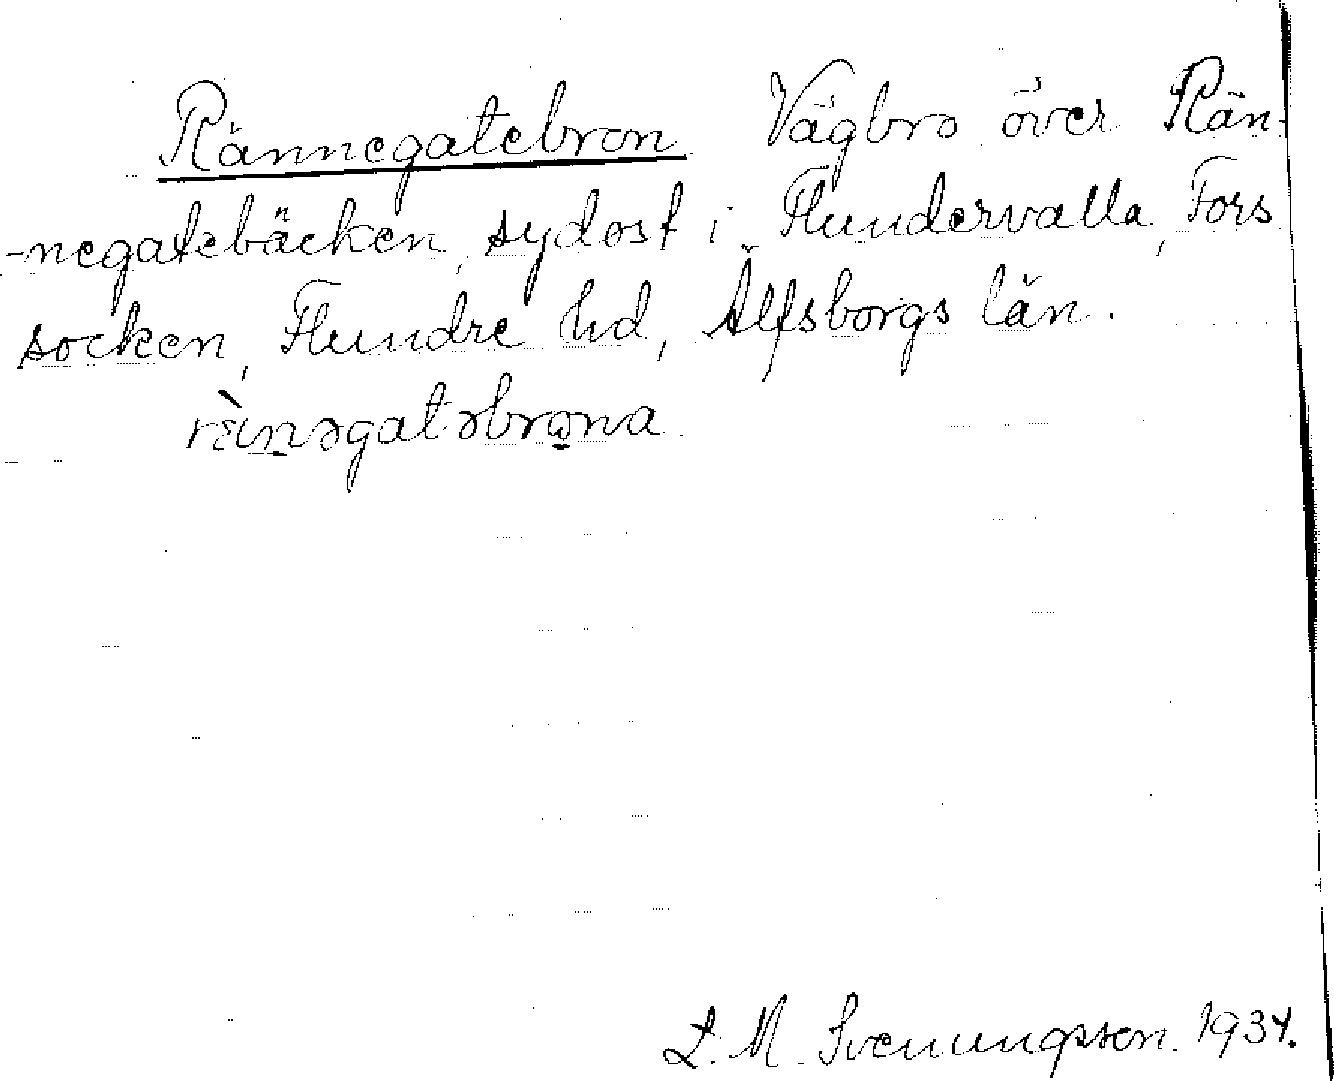 Rännegatebron Vägbro över Rän-
-negatebäcken, sydost i Flundervalla, Fors
socken, Flundre hd, Älfsborgs län.
rɛ̀inəgatəbrωna
L. M. Svenungsson. 1934.